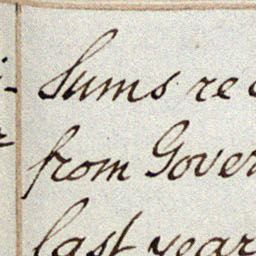 Sums re
from Gover
last year